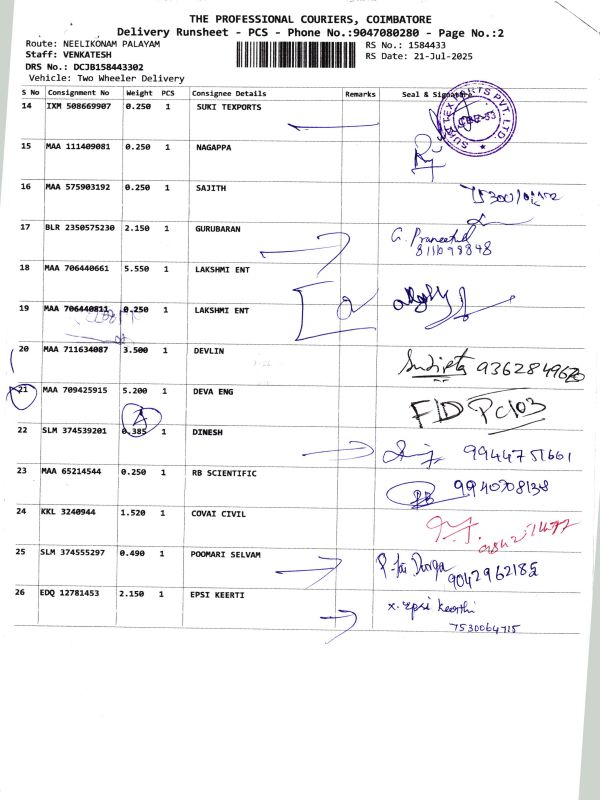 THE PROFESSIONAL COURIERS, COIMBATORE
Delivery Runsheet - PCS - Phone No.:9047080280 - Page No.:2
Route: NEELIKONAM PALAYAM
RS No.: 1584433
Staff: VENKATESH
RS Date: 21-Jul-2025
DRS No.: DCJB158443302
Vehicle: Two Wheeler Delivery
S No Consignment No Weight PCS Consignee Details Remarks Seal & Signature
14 IXM 508669907 0.250 1 SUKI TEXPORTS
15 MAA 111409081 0.250 1 NAGAPPA
16 MAA 575903192 0.250 1 SAJITH
17 BLR 2350575230 2.150 1 GURUBARAN
18 MAA 706440661 5.550 1 LAKSHMI ENT
19 MAA 706440811 0.250 1 LAKSHMI ENT
20 MAA 711634087 3.500 1 DEVLIN
21 MAA 709425915 5.200 1 DEVA ENG FID PC103
22 SLM 374539201 0.385 1 DINESH 9944751661
23 MAA 65214544 0.250 1 RB SCIENTIFIC
24 KKL 3240944 1.520 1 COVAI CIVIL
25 SLM 374555297 0.490 1 POOMARI SELVAM 9042962185
26 EDQ 12781453 2.150 1 EPSI KEERTI x. Epsi keerthi
7530064715